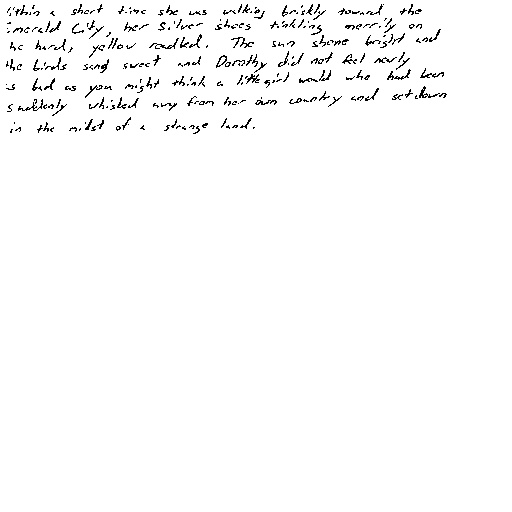 Within a short time she was walking briskly toward the
Emerald City, her Silver Shoes tinkling merrily on
the hard, yellow roadbed. The sun shone bright and
the birds sang sweet and Dorothy did not feel nearly
as bad as you might think a little girl would who had been
suddenly whisked away from her own country and set down
in the midst of a strange land.